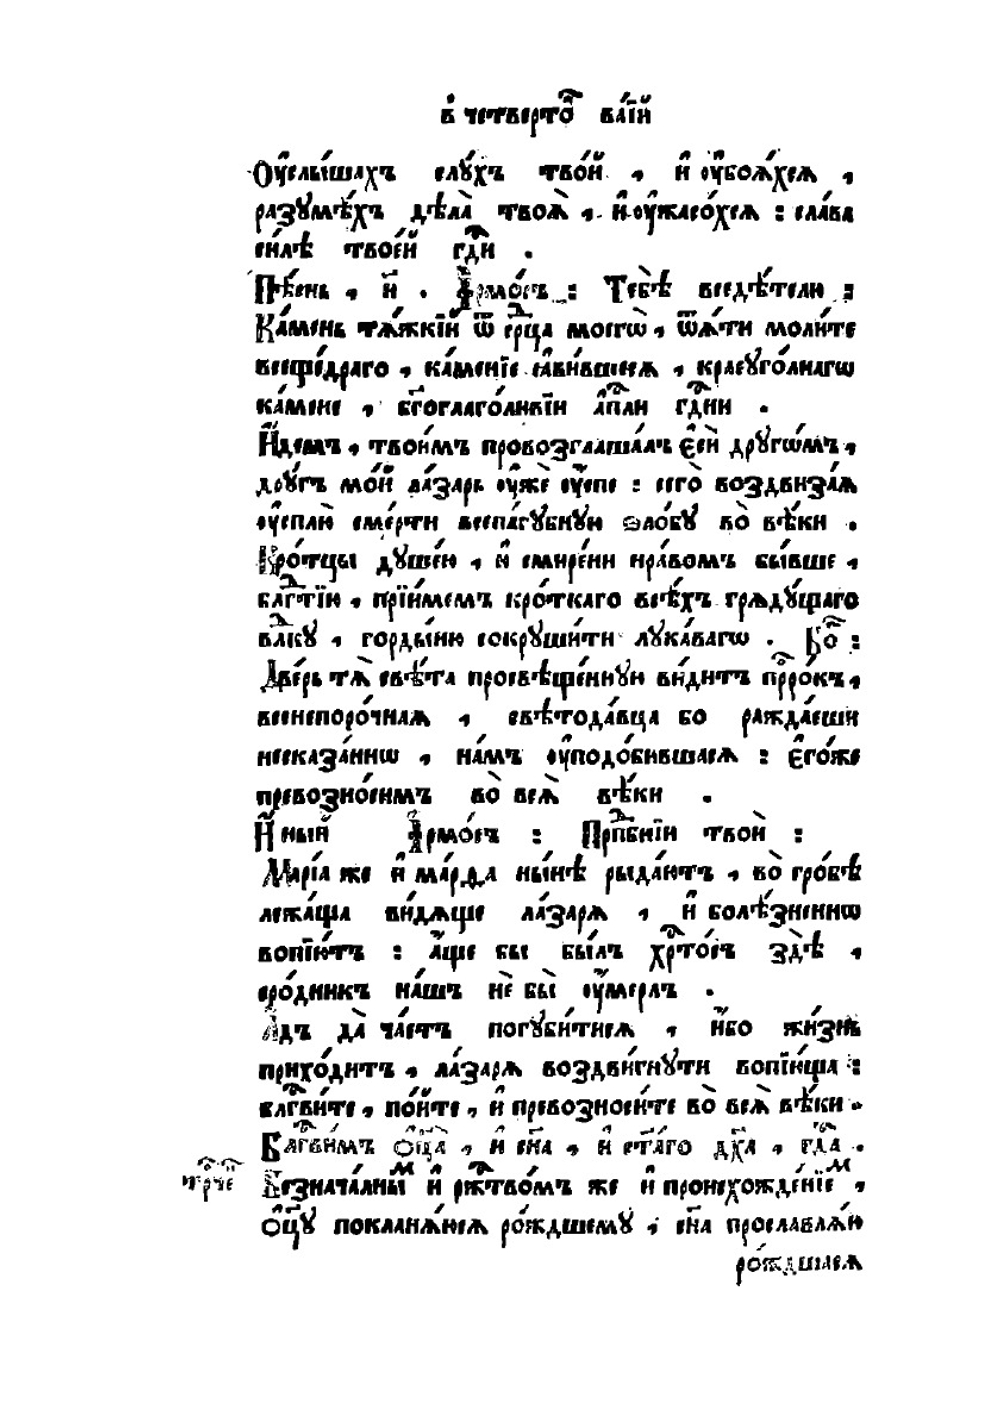 в҆ четверто́къ ва́їй
Оу҆слы́шахъ слу́хъ тво́й , и҆ оу҆боя́хсѧ ,
разумѣ́хъ дѣла̀ твоѧ̀ , и҆ оу҆жасо́хсѧ : сла́ва
си́лѣ твое́й гдⷭ҇и .
Пѣ́снь , и҃ . І҆рмо́съ : Тебѣ̀ вседѣ́телю :
Ка́мень тѧ́жкїй ѿ срⷣца моегѡ̀ , ѿѧ́ти моли́те
всещедраго , ка́менїе ꙗ҆ви́вшесѧ , краеуго́лнагѡ
ка́мене , бг҃оглаго́ливїи а҆пⷭ҇ли гдⷭ҇ни .
И҆́демъ , твои́мъ провозглаша́лъ є҆сѝ другѡ́мъ ,
дру́гъ мо́й ла́зарь оу҆жѐ оу҆́спе : сего̀ воздвиза́ѧ
оу҆сплю̀ сме́рти всепа́губную ѕло́бу во̀ вѣ́ки .
Кро́тцы душе́ю , и҆ смире́ни нра́вомъ бы́вше ,
блгⷣтїю , прїи́мемъ кро́ткаго всѣ́хъ грѧду́щаго
влⷣку , горды́ню сокруши́ти лука́вагѡ . Бо́ :
Две́рь тѧ̀ свѣ́та просвѣще́нную ви́дитъ прⷪ҇ро́къ ,
всенепоро́чнаѧ , свѣтода́вца бо ражда́еши
несказа́ннѡ , на́мъ оу҆подо́бившасѧ : є҆го́же
превозно́симъ во̀ всѧ̀ вѣ́ки .
И҆́ный І҆рмо́съ : Прпⷣбнїи твоѝ :
Марі́а же и҆ ма́рѳа ны́нѣ рыда́ютъ , во̀ гро́бѣ
лежа́ща ви́дѧще ла́зарѧ , и҆ болѣ́зненнѡ
вопїю́тъ : а҆́ще бы бы́лъ хрⷭ҇то́съ здѣ̀ ,
сро́дникъ на́шъ нѐ бы̀ оу҆́мерлъ .
А҆́дъ да̀ ча́етъ погуби́тисѧ , и҆́бо жи́знь
прихо́дитъ , ла́зарѧ воздви́гнути вопїю́ща :
блгⷭ҇ви́те , по́йте , и҆ превозноси́те во̀ всѧ̀ вѣ́ки .
Блгⷭ҇ви́мъ ѻ҆ц҃а̀ , и҆ сн҃а , и҆ ст҃а́го дх҃а , гдⷭ҇а .
Безнача́лныⷨ и҆ ржⷭ҇тво́мъ же и҆ происхожде́нїеⷨ ,
ѻ҆ц҃у покланѧ́юсѧ ро́ждшему , сн҃а прославлѧ́ю
ро́ждшаѧсѧ